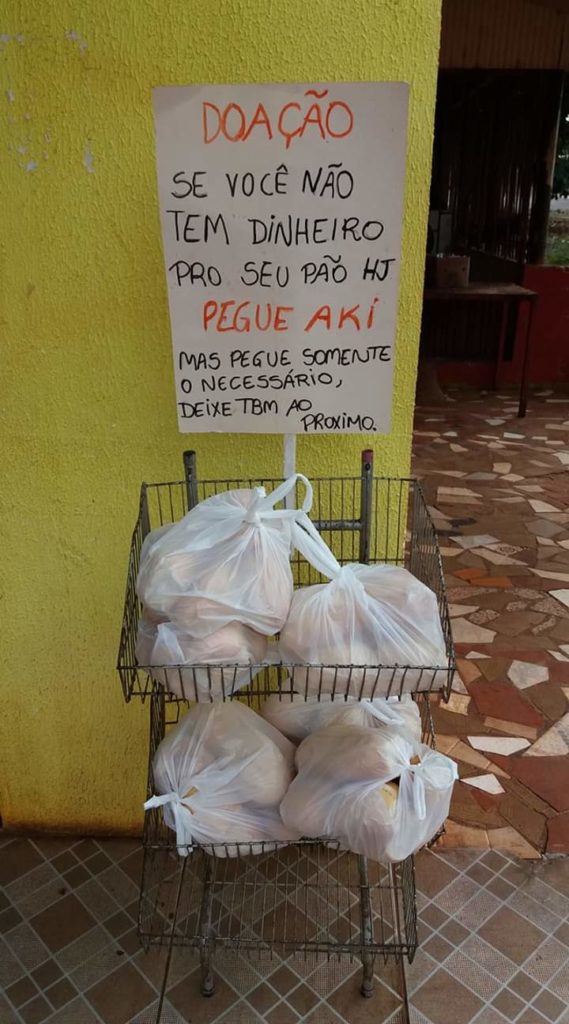 DOAÇÃO
SE VOCÊ NÃO
TEM DINHEIRO
PRO SEU PÃO HJ
PEGUE AKI
MAS PEGUE SOMENTE
O NECESSÁRIO,
DEIXE TBM AO
PROXIMO.